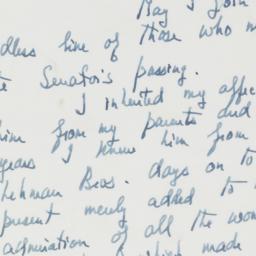 May I join
dless line of those who m
te Senator's passing.
I inherited my affec
him from my parents and
years I knew him from
Lehman Bros. days on to
present merely added to
admiration of all the won
which made